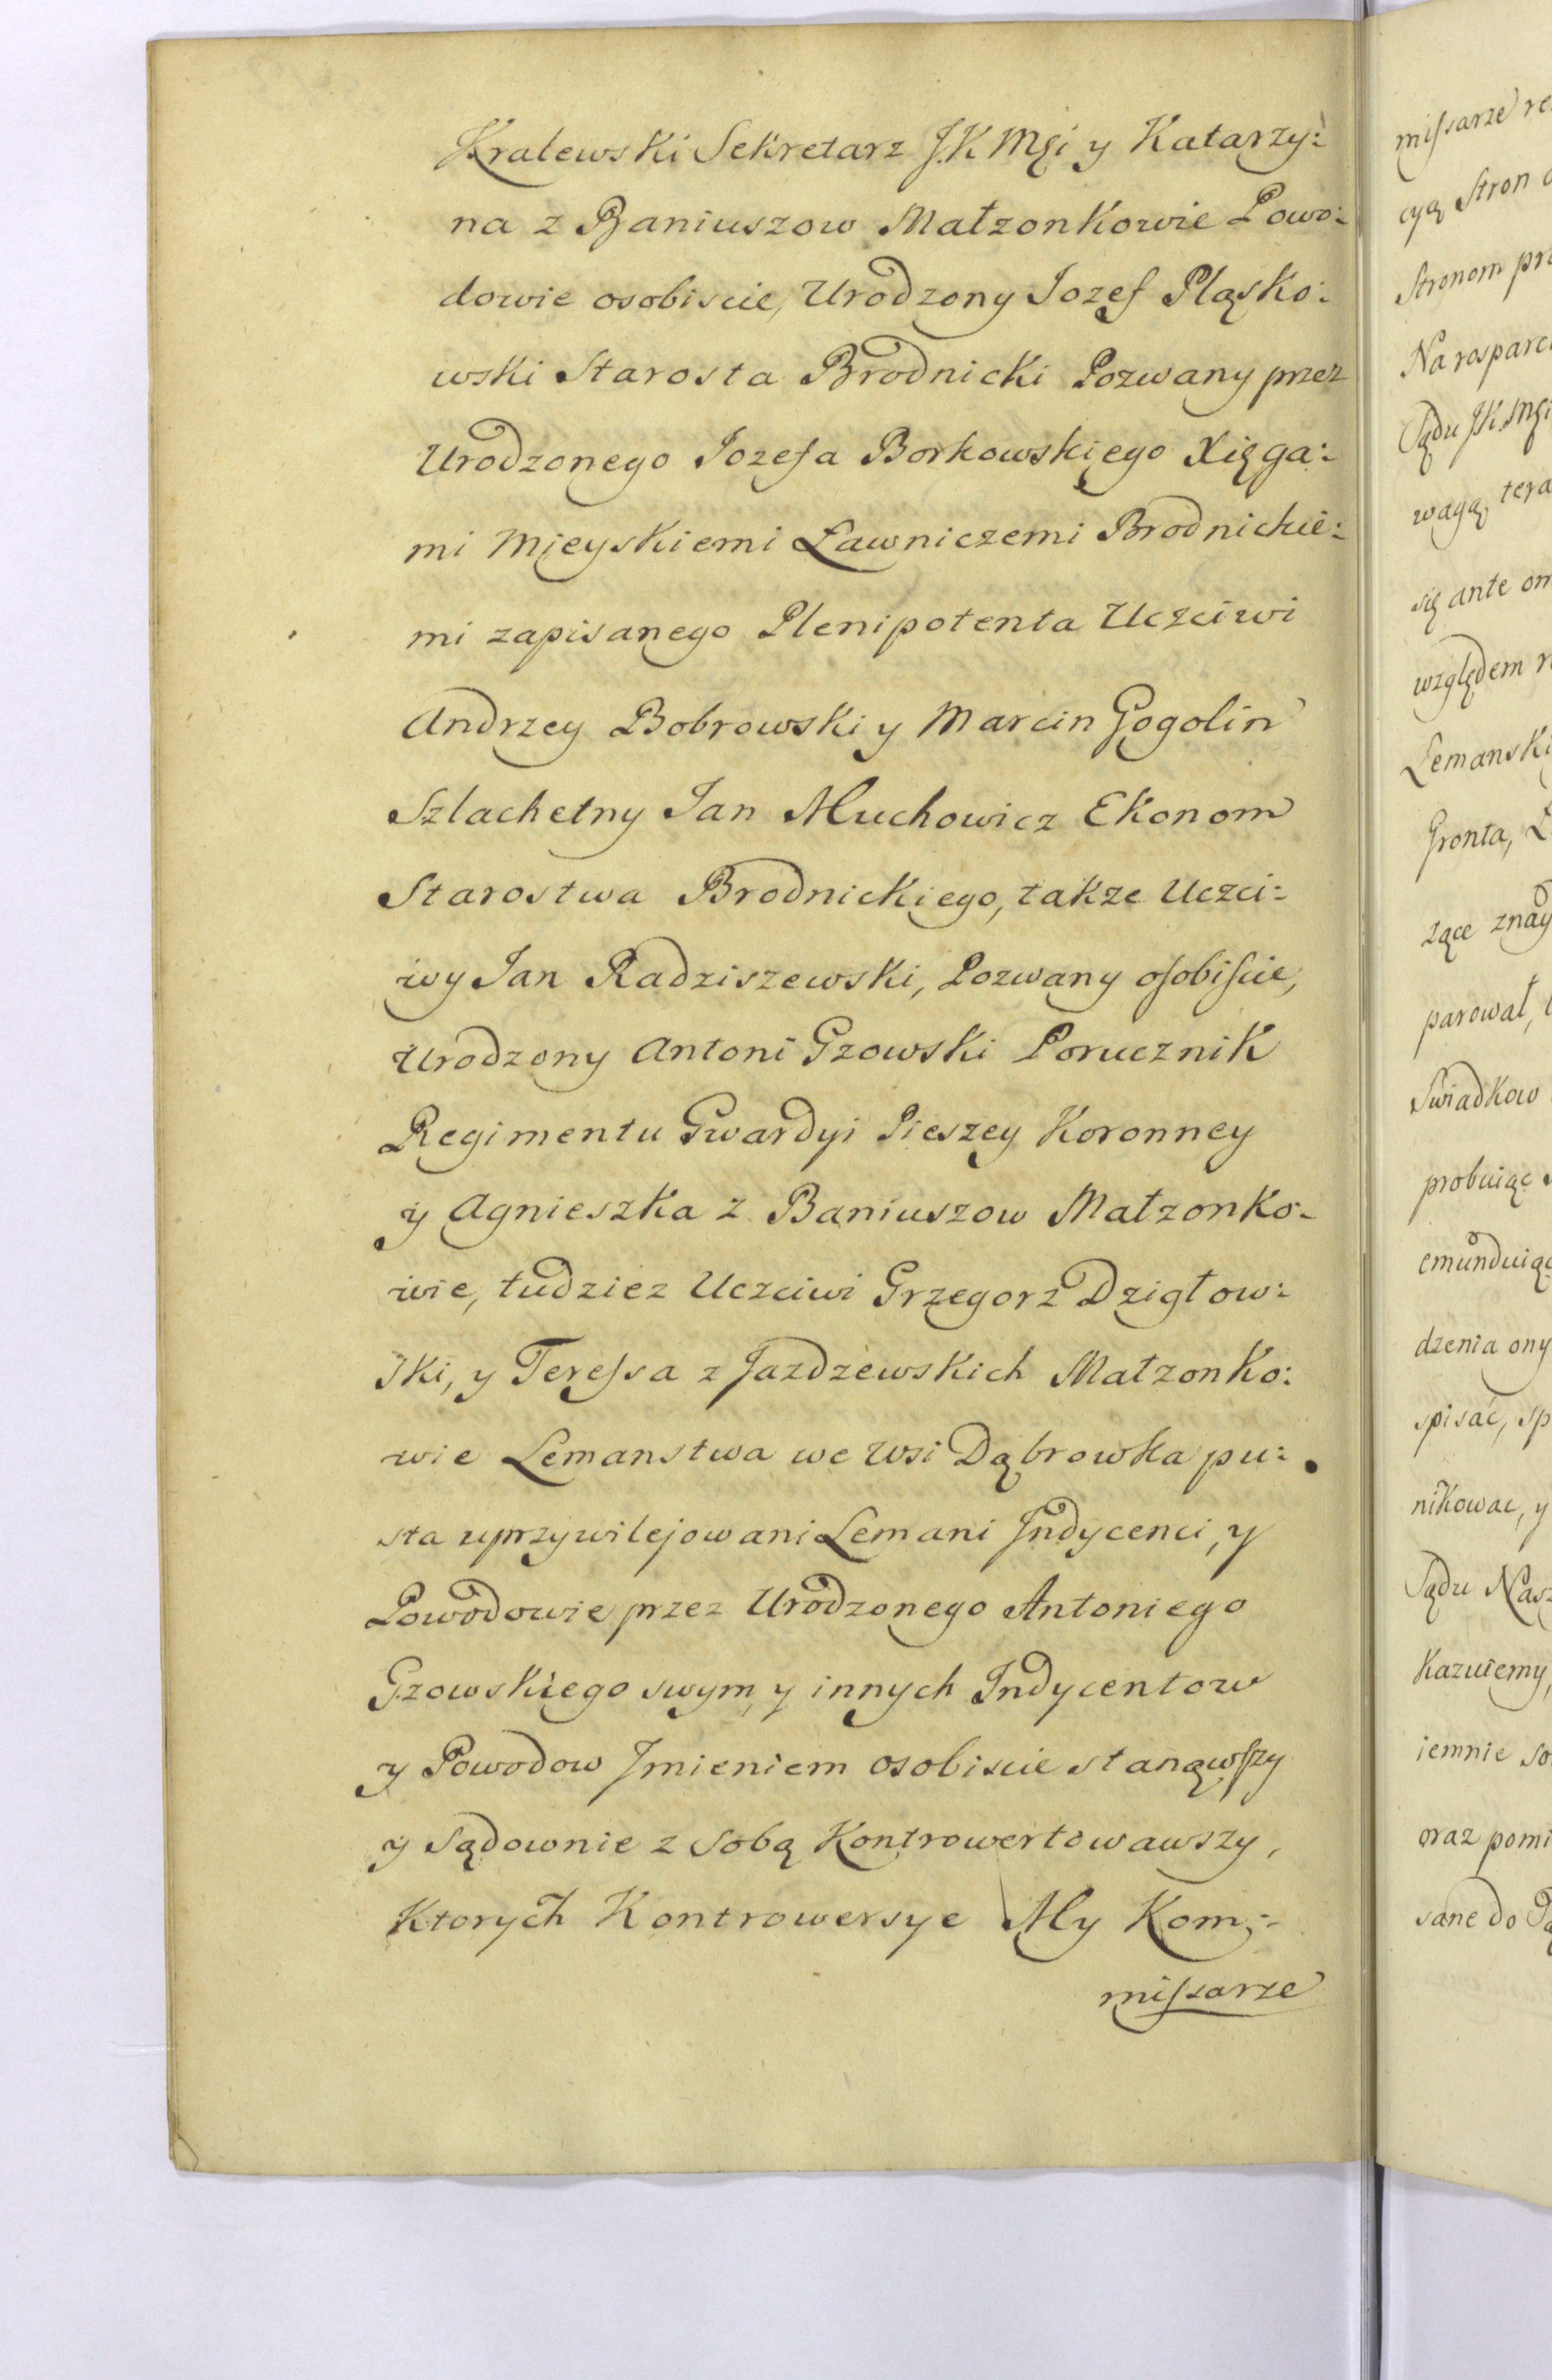 Kralewski Sekretarz J.K Mći y Katarzy:
na z Baniuszow Małzonkowie Powo:
dowie osobiscie, Urodzony Jozef Pląsko:
wski Starosta Brodnicki Pozwany przez
Urodzonego Jozefa Borkowskiego Xięga:
mi Mieyskiemi Ławniczemi Brodnickie:
mi zapisanego Plenipotenta Uczciwi
Andrzey Bobrowski y Marcin Gogolin
Szlachetny Jan Muchowicz Ekonom
Starostwa Brodnickiego, takze Uczci:
wy Jan Radziszewski, Pozwany osobiscie,
Urodzony Antoni Gzowski Porucznik
Regimentu Gwardyi Pieszey Koronney
y Agnieszka z Baniuszow Małzonko:
wie, tudziez Uczciwi Grzegorz Dzigłow:
ski, y Teressa z Jazdzewskich Małzonko:
wie Lemanstwa we Wsi Dąbrowka pu:
sta uprzywilejowani Lemani Indycenci, y
Powodowie przez Urodzonego Antoniego
Gzowskiego swym, y innych Indycentow
y Powodow Jmieniem osobiscie stanąwszy
y sądownie z sobą Kontrowertowawszy,
Ktorych Kontrowersye My Kom:
missarze
missarze re
cyą Stron
Stronom pr
Na rosparc
Sądu J.K.Mći
wagą, tera
się ante om
względem r
Lemanski
Gronta,
zące znay
parował,
Swiadkow
probuiąc
emunduiąc
dzenia ony
spisać, sp
nikowac, y
Sądu Nasz
kazuiemy,
iemnie so
oraz pomi
sane do